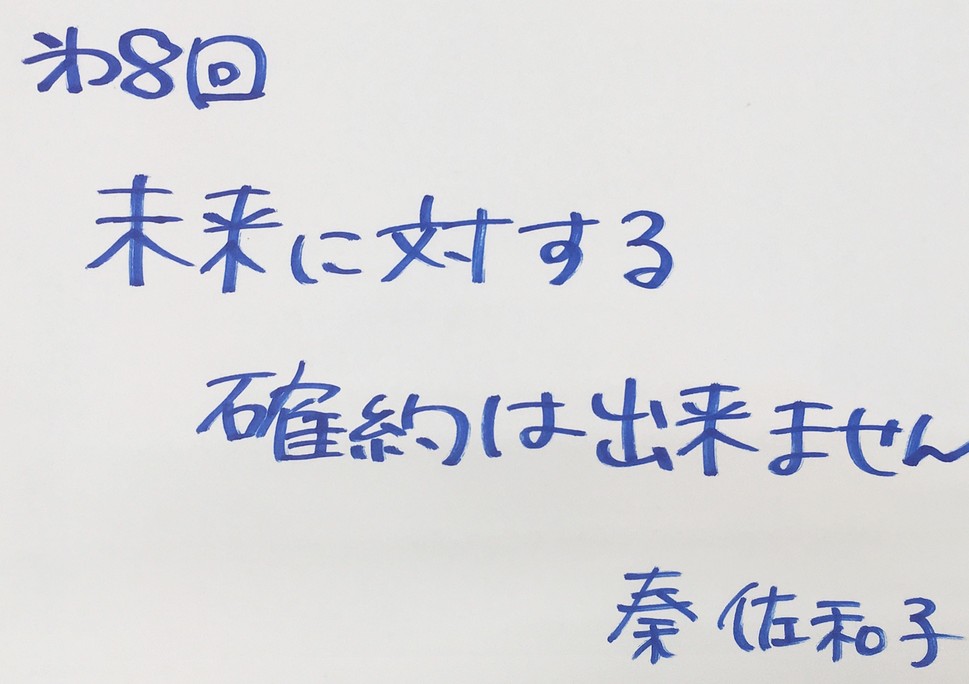 第8回
未来に対する
確約は出来ません
秦 佐和子